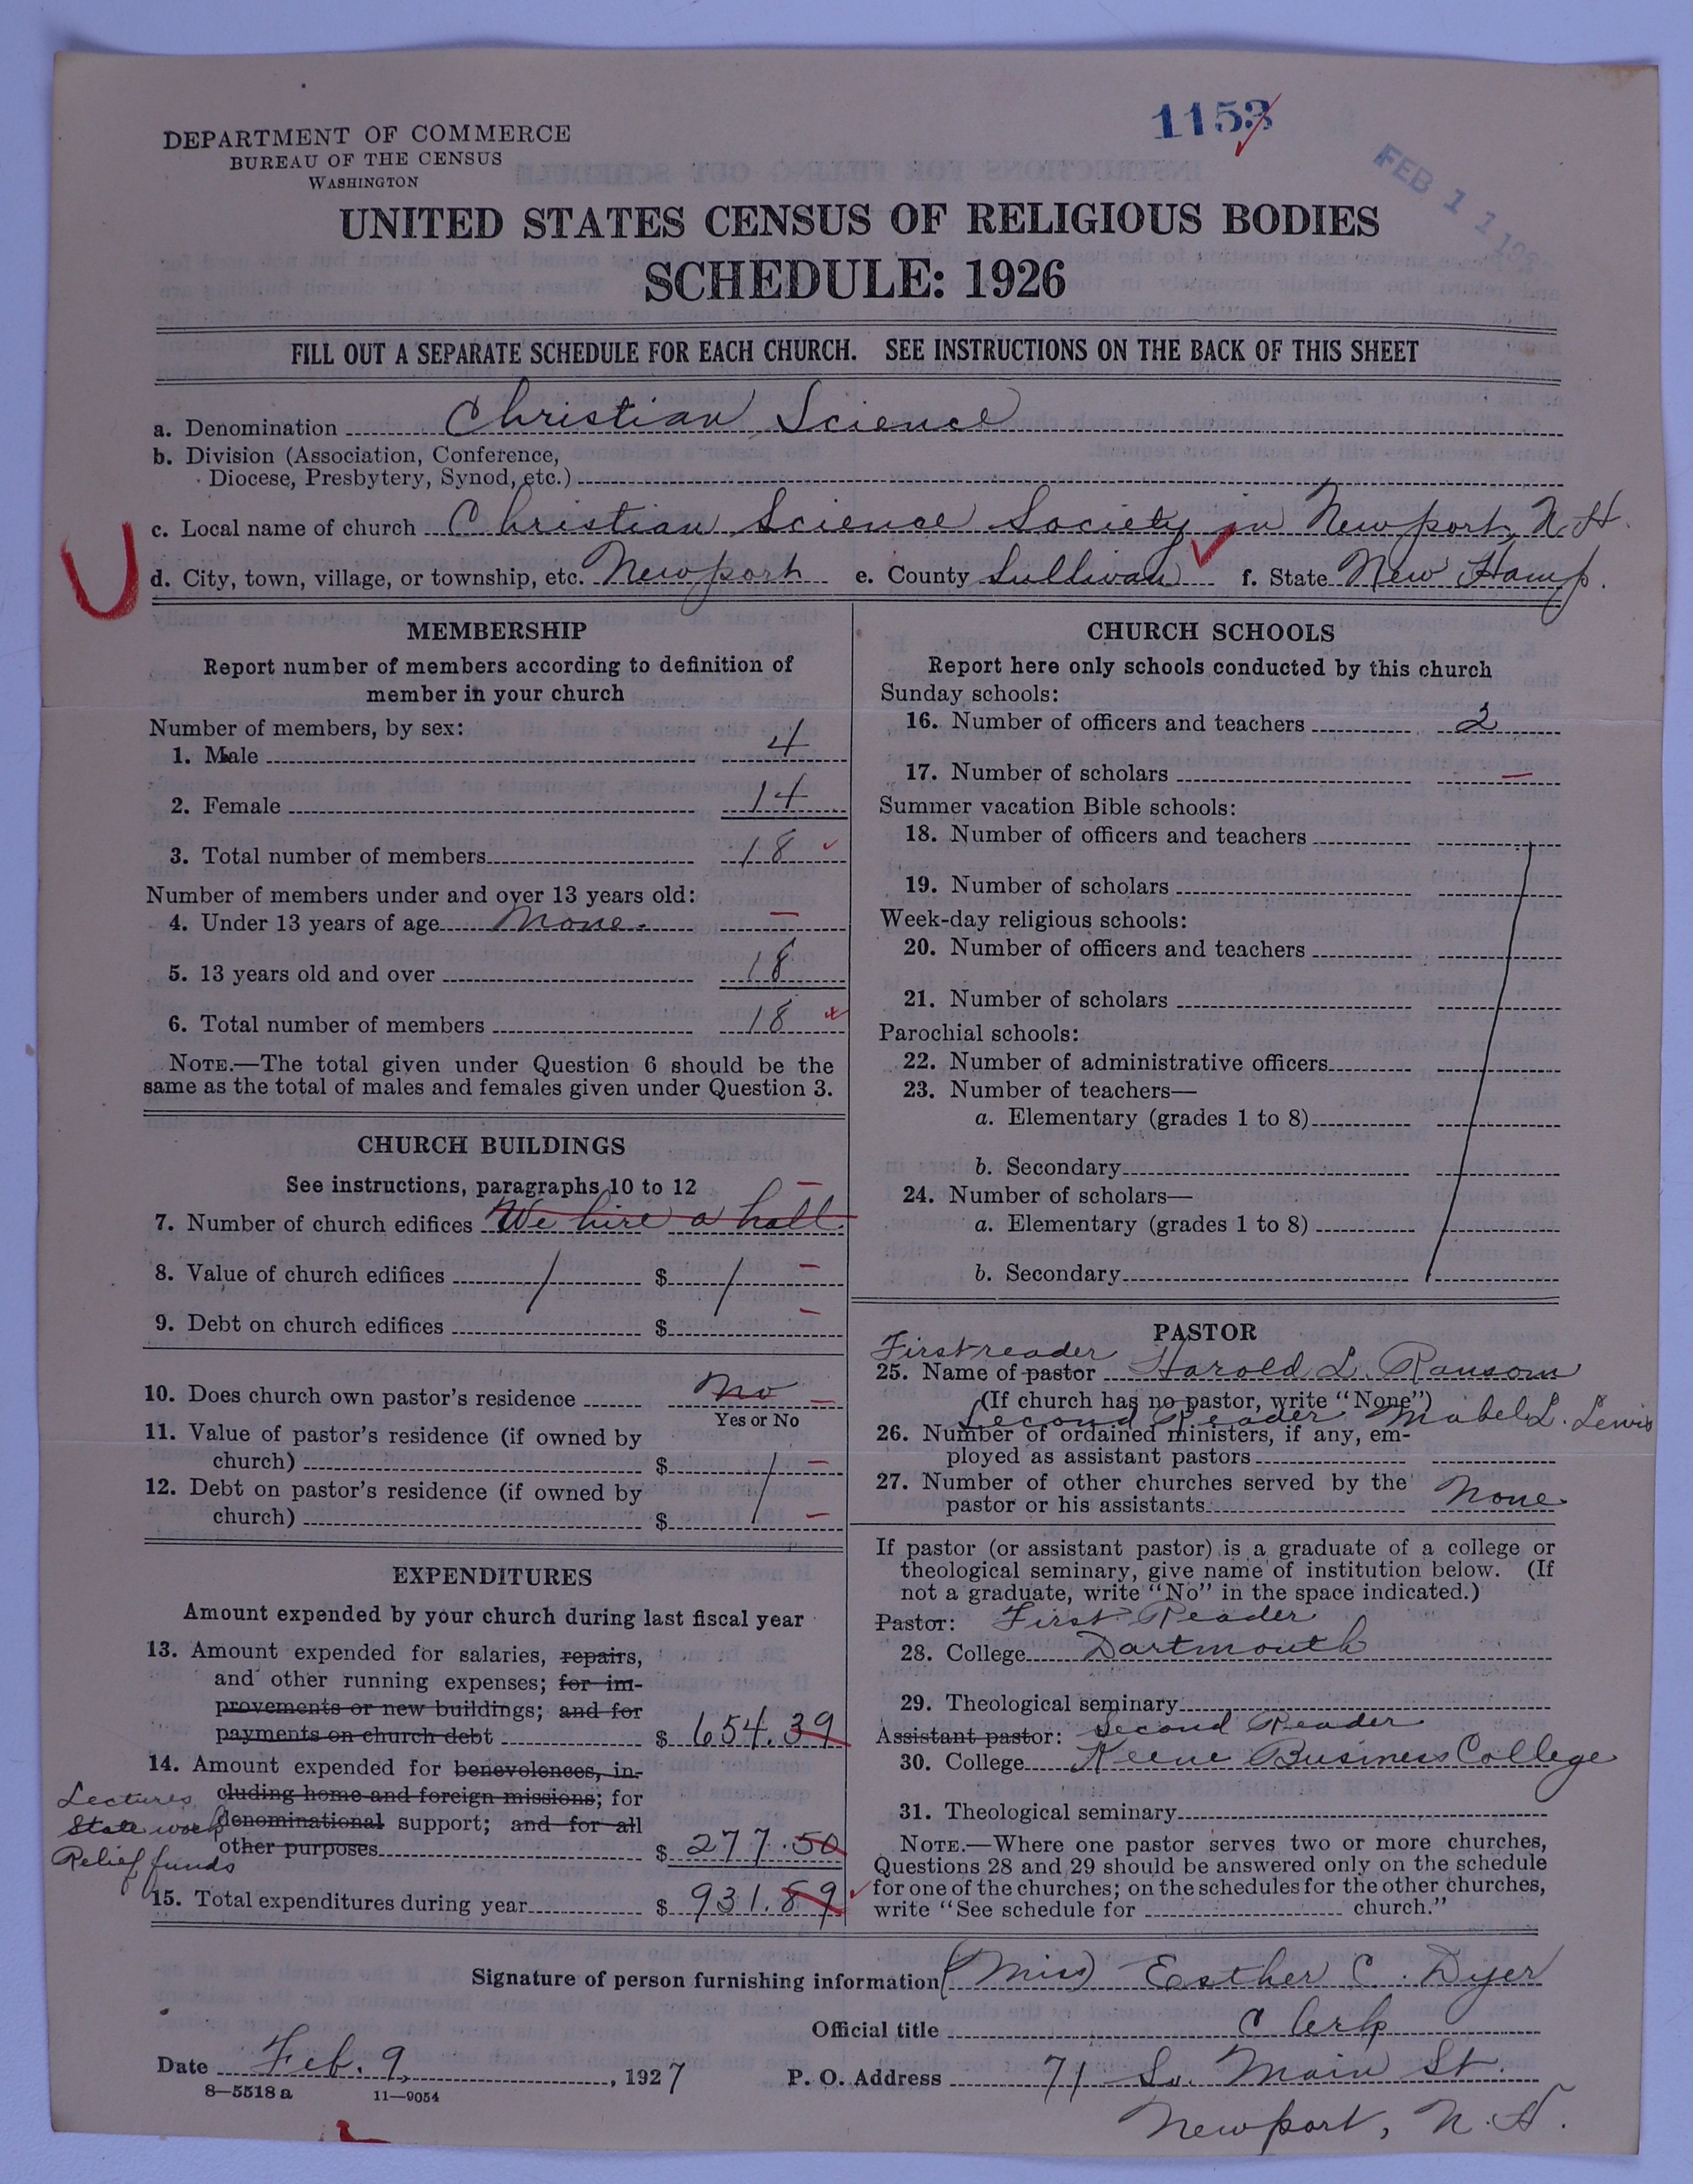 1153
FEB 11 192
DEPARTMENT OF COMMERCE
BUREAU OF THE CENSUS
WASHINGTON
UNITED STATES CENSUS OF RELIGIOUS BODIES
SCHEDULE: 1926
FILL OUT A SEPARATE SCHEDULE FOR EACH CHURCH. SEE INSTRUCTIONS ON THE BACK OF THIS SHEET
a. Denomination Christian Science
b. Division (Association, Conference,
Diocese, Presbytery, Synod, etc.)
c. Local name of church Christian Science Society in Newport, N. H.
d. City, town, village, or township, etc. Newport e. County Sullivan f. State New Hamp.
MEMBERSHIP
Report number of members according to definition of
member in your church
Number of members, by sex:
1. Male 4
2. Female 14
3. Total number of members 18
Number of members under and over 13 years old:
4. Under 13 years of age None. —
5. 13 years old and over 18
6. Total number of members 18
NOTE.—The total given under Question 6 should be the
same as the total of males and females given under Question 3.
CHURCH BUILDINGS
See instructions, paragraphs 10 to 12 —
7. Number of church edifices We hire a hall.
8. Value of church edifices $ —
9. Debt on church edifices $ —
10. Does church own pastor's residence No —
Yes or No
11. Value of pastor's residence (if owned by
church) $ —
12. Debt on pastor's residence (if owned by
church) $ —
EXPENDITURES
Amount expended by your church during last fiscal year
13. Amount expended for salaries, repairs,
and other running expenses; for im-
provements or new buildings; and for
payments on church debt $ 654.39
14. Amount expended for benevolences, in-
Lectures cluding home and foreign missions; for
State work denominational support; and for all
other purposes $ 277.50
Relief funds
15. Total expenditures during year $ 931.89
CHURCH SCHOOLS
Report here only schools conducted by this church
Sunday schools:
16. Number of officers and teachers 2
17. Number of scholars —
Summer vacation Bible schools:
18. Number of officers and teachers
19. Number of scholars
Week-day religious schools:
20. Number of officers and teachers
21. Number of scholars
Parochial schools:
22. Number of administrative officers
23. Number of teachers—
a. Elementary (grades 1 to 8)
b. Secondary
24. Number of scholars—
a. Elementary (grades 1 to 8)
b. Secondary
PASTOR
First reader
25. Name of pastor Harold L. Ransom
(If church has no pastor, write "None")
Second Reader Mabel L. Lewis
26. Number of ordained ministers, if any, em-
ployed as assistant pastors
27. Number of other churches served by the
pastor or his assistants None
If pastor (or assistant pastor) is a graduate of a college or
theological seminary, give name of institution below. (If
not a graduate, write "No" in the space indicated.)
Pastor: First Reader
28. College Dartmouth
29. Theological seminary
Assistant pastor: Second Reader
30. College Keene Business College
31. Theological seminary
NOTE.—Where one pastor serves two or more churches,
Questions 28 and 29 should be answered only on the schedule
for one of the churches; on the schedules for the other churches,
write "See schedule for church."
Signature of person furnishing information (Miss) Esther C. Dyer
Official title Clerk
Date Feb. 9, 1927 P. O. Address 71 So. Main St.
8—5518a 11—9054
Newport, N. H.